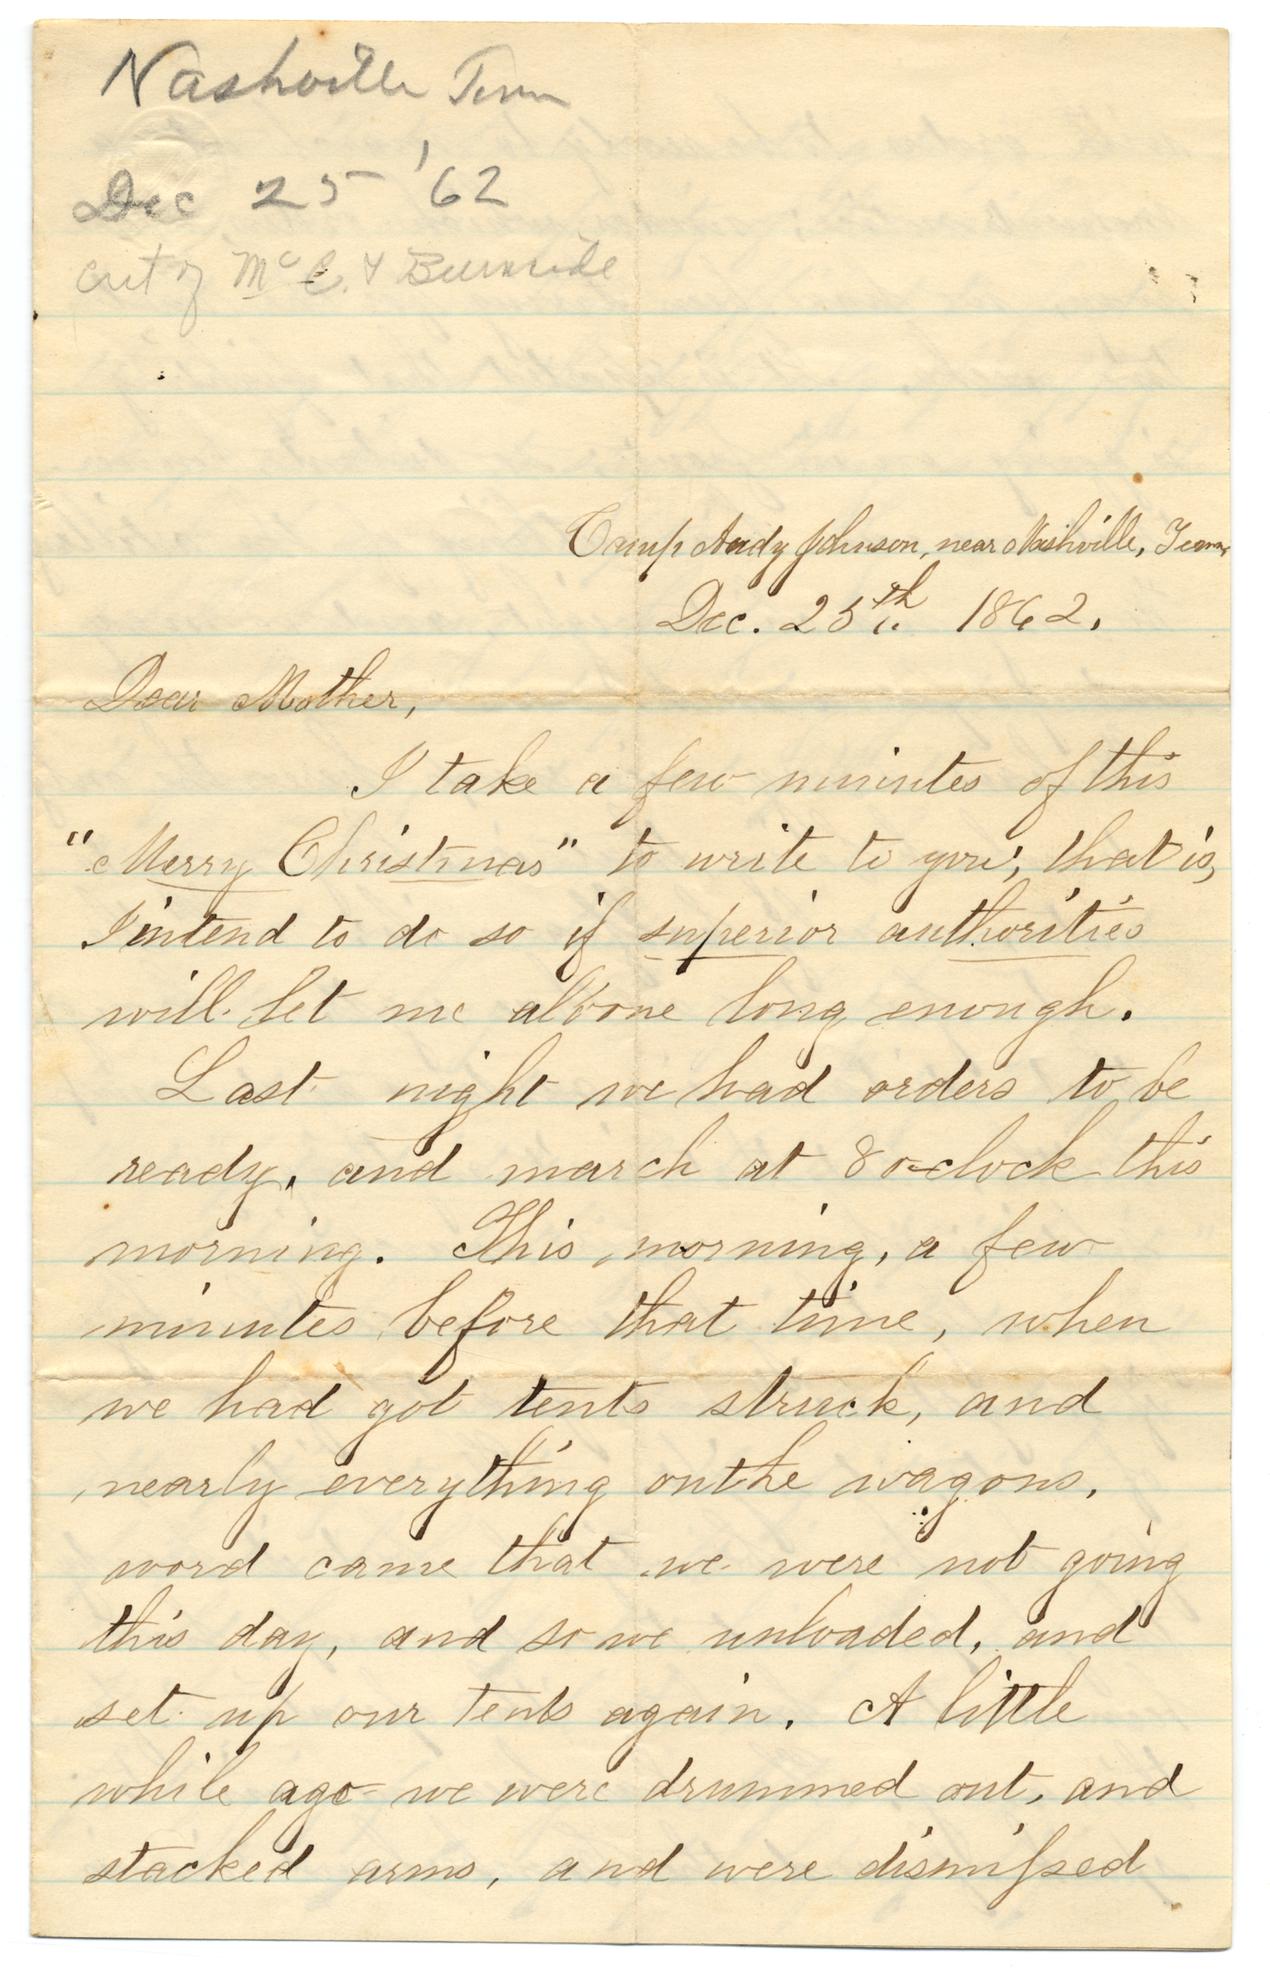 Nashville Tenn
Dec 25 '62
crit of McC. & Burnside
Camp Andy Johnson, near Nashville, Tenn,
Dec. 25th 1862.
Dear Mother,
I take a few minutes of this
"Merry Christmas" to write to you; that is,
I intend to do so if superior authorities
will let me alone long enough.
Last night we had orders to be
ready, and march at 8 o-clock this
morning. This morning, a few
minutes before that time, when
we had got tents struck, and
nearly everything on the wagons,
word came that we were not going
this day, and so we unloaded, and
set up our tents again. A little
while ago we were drummed out, and
stacked arms, and were dismissed